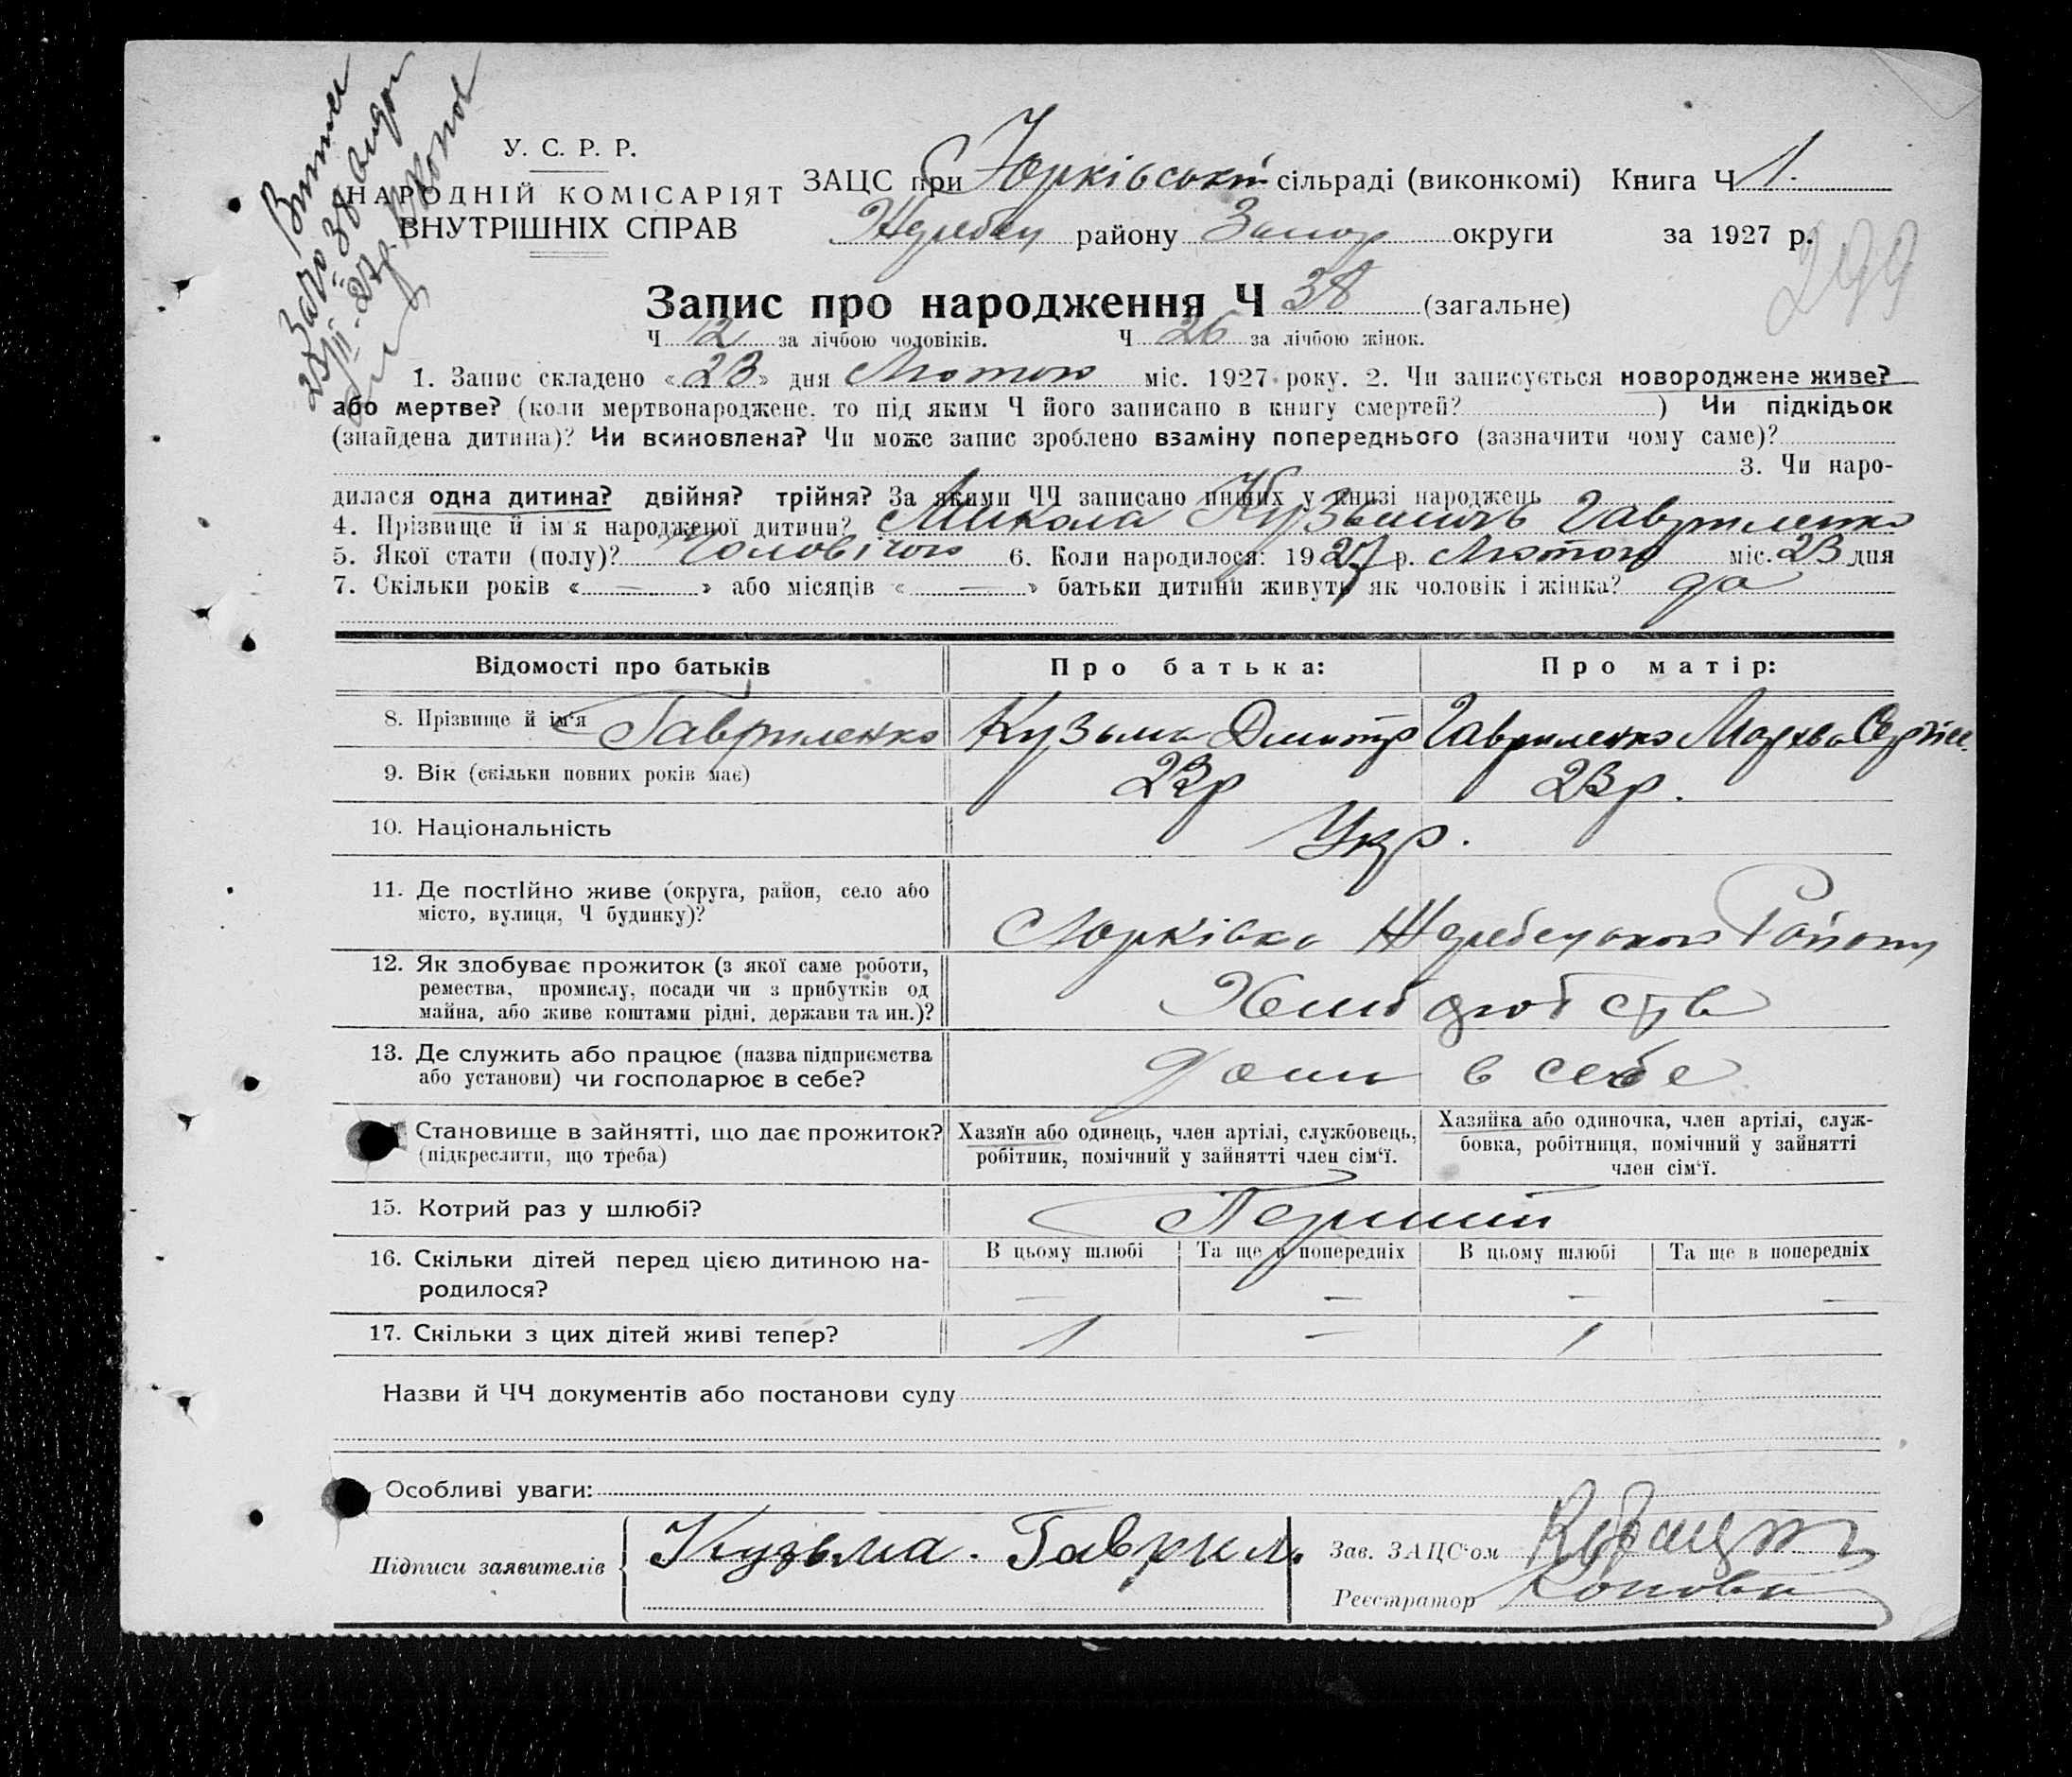 У. С. Р. Р.
НАРОДНІЙ КОМІСАРІЯТ
ВНУТРІШНІХ СПРАВ
ЗАЦС при Юрківській сільраді (виконкомі) Книга Ч 1.
Жеребец району Запор округи за 1927 р.
299
Запис про народження Ч 38 (загальне)
Ч 12 за лічбою чоловіків. Ч 26 за лічбою жінок.
1. Запис складено «23» дня Лютого міс. 1927 року. 2. Чи записується новороджене живе?
або мертве? (коли мертвонароджене, то під яким Ч його записано в книгу смертей? ) Чи підкідьок
(знайдена дитина)? Чи всиновлена? Чи може запис зроблено взаміну попереднього (зазначити чому саме)?
3. Чи наро-
дилася одна дитина? двійня? трійня? За якими ЧЧ записано инших у книзі народжень
4. Прізвище й ім'я народженої дитини? Микола Кузьмичъ Гавриленко
5. Якої стати (полу)? Чоловічого 6. Коли народилося: 1927 р. Лютого міс. 23 дня
7. Скільки років « — » або місяців « — » батьки дитини живуть як чоловік і жінка? да
Відомості про батьків Про батька: Про матір:
8. Прізвище й ім'я Гавриленко Кузьма Дмитр Гавриленко Сергіев.
9. Вік (скільки повних років має) 23р 23р.
10. Національність Укр.
11. Де постійно живе (округа, район, село або
місто, вулиця, Ч будинку)?
Юрківка Жеребецького Району
12. Як здобуває прожиток (з якої саме роботи,
ремества, промислу, посади чи з прибутків од
майна, або живе коштами рідні, держави та ин.)?
Хлибдробств
13. Де служить або працює (назва підприємства
або установи) чи господарює в себе?
дома в себе
Становище в зайнятті, що дає прожиток?
(підкреслити, що треба)
Хазяїн або одинець, член артілі, службовець,
робітник, помічний у зайнятті член сім'ї.
Хазяйка або одиночка, член артілі, служ-
бовка, робітниця, помічний у зайнятті
член сім'ї.
15. Котрий раз у шлюбі? Перший
16. Скільки дітей перед цією дитиною на-
родилося?
В цьому шлюбі Та ще в попередніх В цьому шлюбі Та ще в попередніх
— — — —
17. Скільки з цих дітей живі тепер? 1 — 1
Назви й ЧЧ документів або постанови суду
Особливі уваги:
Підписи заявителів Кузьма. Гаврил.
Зав. ЗАЦС'ом
Реєстратор